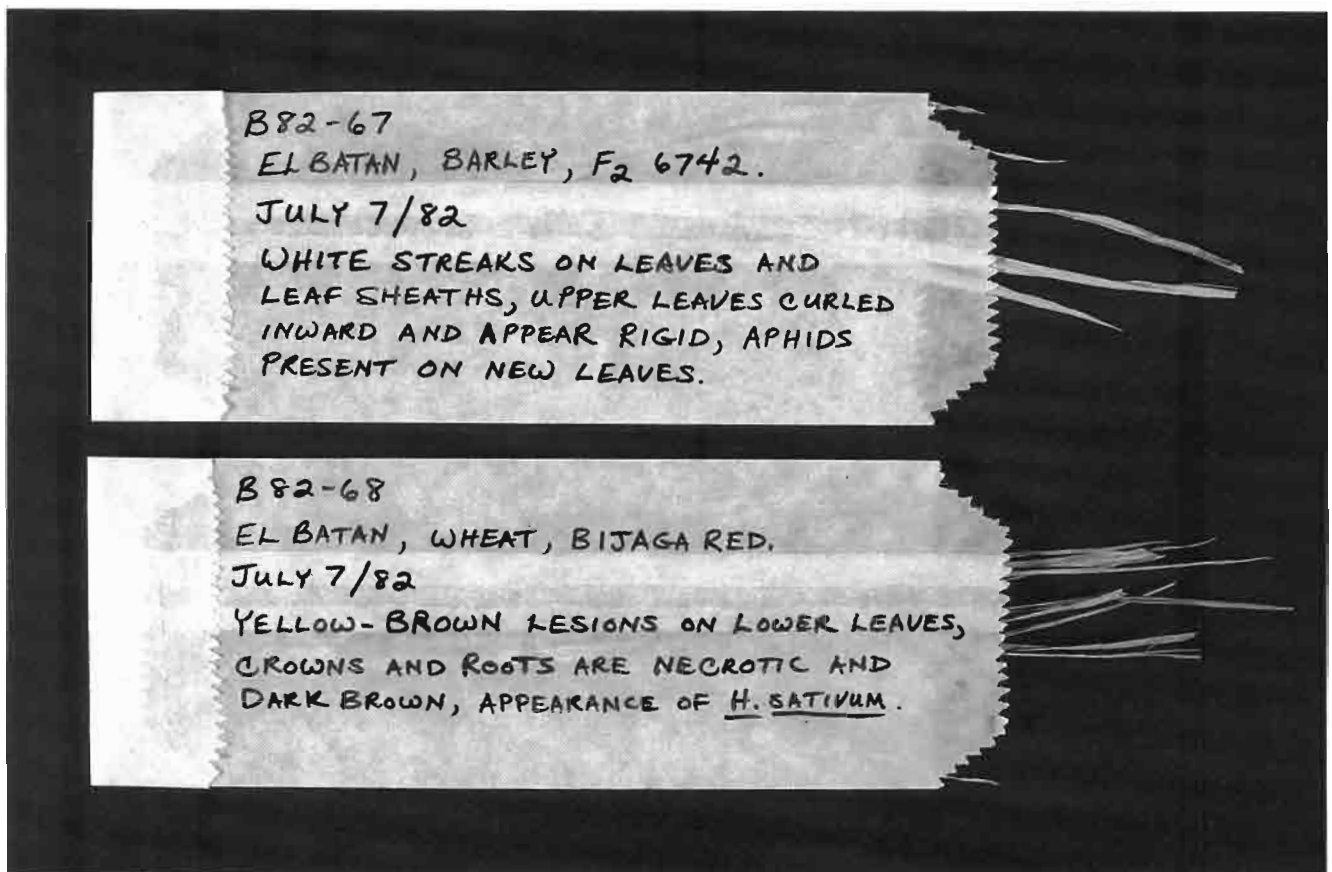 B82-67
EL BATAN, BARLEY, F2 6742.
JULY 7/82
WHITE STREAKS ON LEAVES AND
LEAF SHEATHS, UPPER LEAVES CURLED
INWARD AND APPEAR RIGID, APHIDS
PRESENT ON NEW LEAVES.
B82-68
EL BATAN, WHEAT, BIJAGA RED.
JULY 7/82
YELLOW-BROWN LESIONS ON LOWER LEAVES,
CROWNS AND ROOTS ARE NECROTIC AND
DARK BROWN, APPEARANCE OF H. SATIVUM.